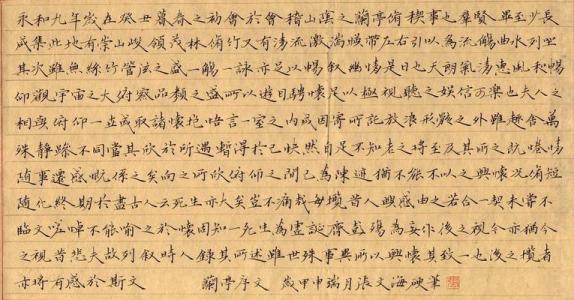 永和九年歲在癸丑暮春之初會於會稽山陰之蘭亭脩稧事也羣賢畢至少長
咸集此地有崇山峻領茂林脩竹又有清流激湍暎帶左右引以為流觴曲水列坐
其次雖無絲竹管弦之盛一觴一詠亦足以暢叙幽情是日也天朗氣清惠風和暢
仰觀宇宙之大俯察品類之盛所以遊目騁懷足以極視聽之娛信可樂也夫人之
相與俯仰一世或取諸懷抱悟言一室之內或因寄所託放浪形骸之外雖趣舍萬
殊靜躁不同當其欣於所遇暫得於己快然自足不知老之將至及其所之既惓情
隨事遷感慨係之矣向之所欣俯仰之間已為陳迹猶不能不以之興懷況脩短
隨化終期於盡古人云死生亦大矣豈不痛哉每攬昔人興感由之若合一契未嘗不
臨文嗟悼不能喻之於懷固知一死生為虛誕齊彭殤為妄作後之視今亦猶今
之視昔悲夫故列叙時人錄其所述雖世殊事異所以興懷其致一也後之攬者
亦將有感於斯文 蘭亭序文 歲甲申瑞月張文海硬筆